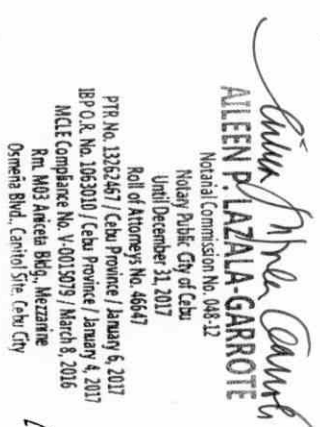 AILEEN P. LAZALA-GARROTE
Notarial Commission No. 048-12
Notary Public City of Cebu
Until December 31, 2017
Roll of Attorneys No. 46647
PTR No. 13262467 / Cebu Province / January 6, 2017
IBP O.R. No. 1063010 / Cebu Province / January 4, 2017
MCLE Compliance No. V-0015079 / March 8, 2016
Rm. M03 Aniceta Bldg., Mezzanine
Osmeña Blvd., Capitol Site, Cebu City